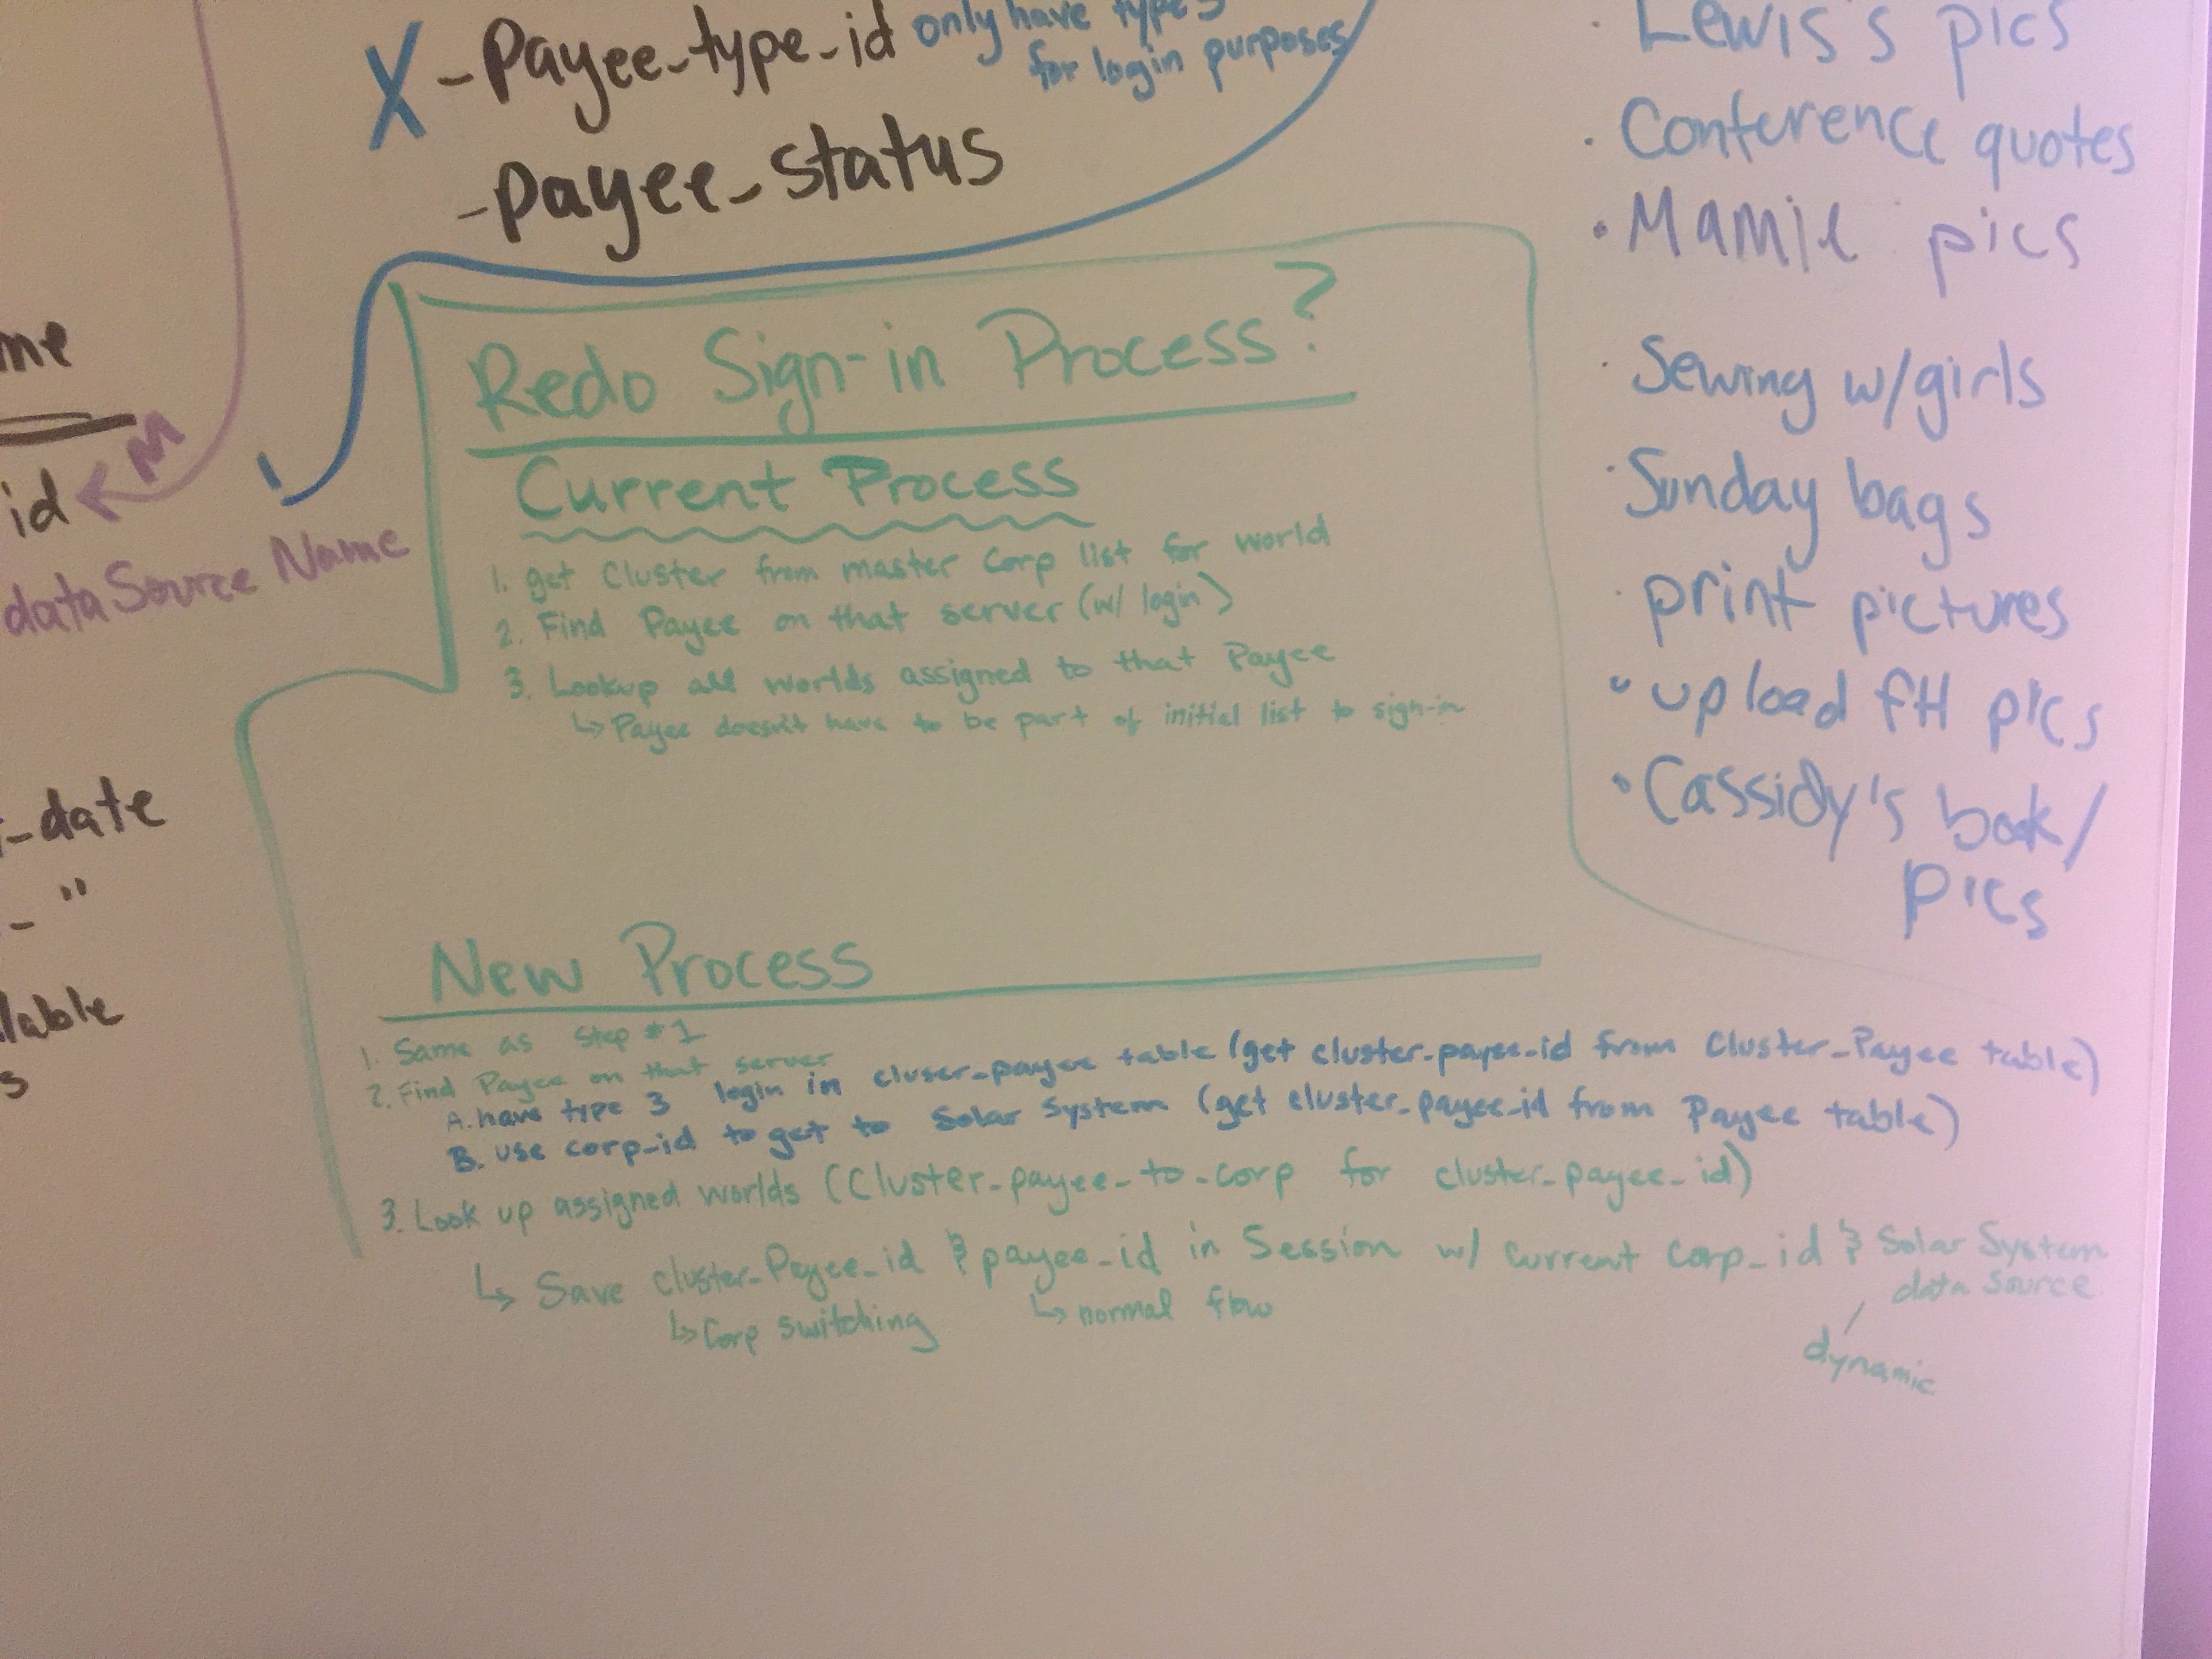 X - Payee_type_id only have type 3
for login purposes
- payee_status
me
M
id
dataSource Name
-date
- "
lable
s
Redo Sign-in Process?
Current Process
1. get Cluster from master Corp list for world
2. Find Payee on that server (w/ login)
3. Lookup all worlds assigned to that Payee
↳ Payee doesn't have to be part of initial list to sign-in
New Process
1. Same as Step #1
2. Find Payee on that server
A. have type 3 login in cluser_payee table (get cluster_payee_id from Cluster_Payee table)
B. use corp_id to get to Solar System (get cluster_payee_id from Payee table)
3. Look up assigned worlds (Cluster_payee_to_corp for cluster_payee_id)
↳ Save cluster_Payee_id & payee_id in Session w/ current corp_id & Solar System
data source
↳ Corp switching ↳ normal flow
dynamic
· Lewis's pics
· Conference quotes
· Mamie pics
· Sewing w/girls
· Sunday bags
· print pictures
· upload FH pics
· Cassidy's book/
pics